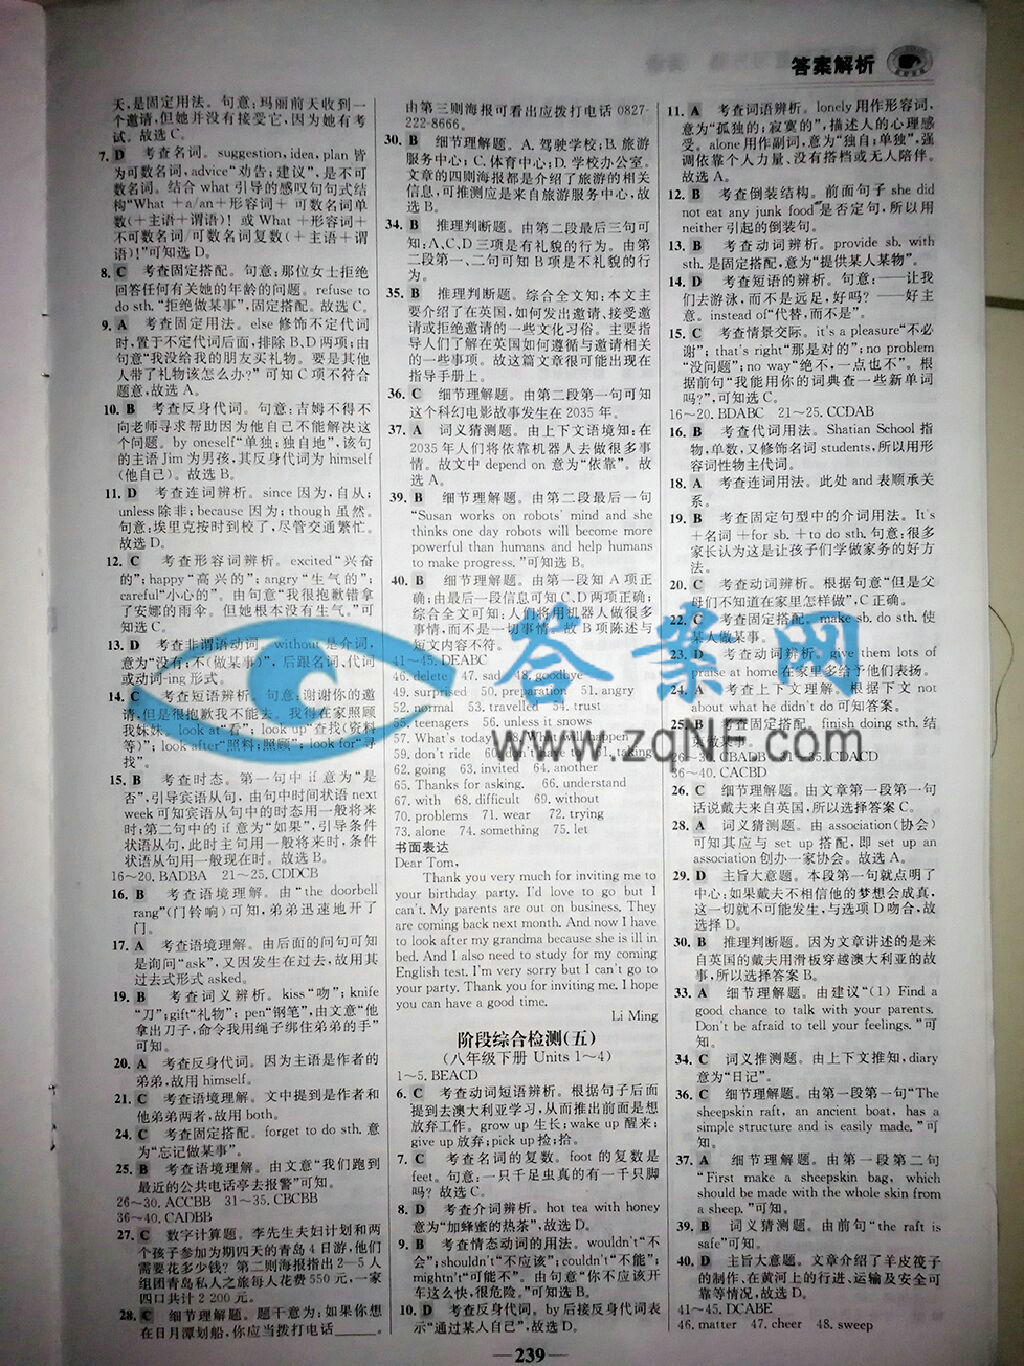 答案解析
天,是固定用法。句意:玛丽前天收到一
个邀请,但她并没有接受它,因为她有考
试。故选C。
7. D 考查名词。suggestion,idea,plan皆
为可数名词,advice“劝告;建议”,是不可
数名词。结合what引导的感叹句句式结
构“What +a/an+形容词+ 可数名词单
数(+主语+谓语)! 或What +形容词+
不可数名词/可数名词复数(+主语+谓
语)!”可知选D。
8. C 考查固定搭配。句意:那位女士拒绝
回答任何有关她的年龄的问题。refuse to
do sth.“拒绝做某事”,固定搭配。故选C。
9. A 考查固定用法。else修饰不定代词
时,置于不定代词后面,排除B、D两项;由
句意“我没给我的朋友买礼物。要是其他
人带了礼物该怎么办?”可知C项不符合
题意,故选A。
10. B 考查反身代词。句意:吉姆不得不
向老师寻求帮助因为他自己不能解决这
个问题。by oneself“单独;独自地”,该句
的主语Jim为男孩,其反身代词为himself
(他自己)。故选B。
11. D 考查连词辨析。since因为,自从;
unless除非;because因为;though虽然。
句意:埃里克按时到校了,尽管交通繁忙。
故选D。
12. C 考查形容词辨析。excited“兴奋
的”;happy“高兴的”;angry“生气的”;
careful“小心的”。由句意“我很抱歉错拿
了安娜的雨伞。但她根本没有生气。”可
知选C。
13. D 考查非谓语动词。without是介词,
意为“没有;不(做某事)”,后跟名词、代词
或动词-ing形式。
14. C 考查短语辨析。句意:谢谢你的邀
请,但是很抱歉我不能去。我得在家照顾
我妹妹。look at“看”;look up“查找(资料
等)”;look after“照料;照顾”;look for“寻
找”。
15. B 考查时态。第一句中if意为“是
否”,引导宾语从句,由句中时间状语next
week可知宾语从句中的时态用一般将来
时;第二句中的if意为“如果”,引导条件
状语从句,此时主句用一般将来时,条件
状语从句用一般现在时。故选B。
16~20. BADBA 21~25. CDDCB
16. B 考查语境理解。由“the doorbell
rang”(门铃响)可知,弟弟迅速地开了
门。
17. A 考查语境理解。由后面的问句可知
是询问“ask”,又因发生在过去,故用其
过去式形式asked。
19. B 考查词义辨析。kiss“吻”;knife
“刀”;gift“礼物”; pen“钢笔”,由文意“他
拿出刀子,命令我用绳子绑住弟弟的手”
可知。
20. A 考查反身代词。因为主语是作者的
弟弟,故用himself。
21. C 考查语境理解。文中提到是作者和
他弟弟两者,故用both。
24. C 考查固定搭配。forget to do sth.意
为“忘记做某事”。
25. B 考查语境理解。由文意“我们跑到
最近的公共电话亭去报警”可知。
26~30. ACCBB 31~35. CBCBB
36~40. CADBB
27. C 数字计算题。李先生夫妇计划和两
个孩子参加为期四天的青岛4日游,他们
需要花多少钱?第二则海报指出2—5人
组团青岛私人之旅每人花费550元,一家
四口共计2 200元。
28. C 细节理解题。题干意为:如果你想
在日月潭划船,你应当拨打电话____。
由第三则海报可看出应拨打电话0827-
222-8666。
30. B 细节理解题。A.驾驶学校;B.旅游
服务中心;C.体育中心;D.学校办公室。
文章的四则海报都是介绍了旅游的相关
信息,可推测应是来自旅游服务中心,故
选B。
34. B 推理判断题。由第二段最后三句可
知:A、C、D三项是有礼貌的行为。由第
二段第一、二句可知B项是不礼貌的行
为。
35. B 推理判断题。综合全文知:本文主
要介绍了在英国,如何发出邀请、接受邀
请或拒绝邀请的一些文化习俗。主要指
导人们了解在英国如何遵循与邀请相关
的一些事项。故这篇文章很可能出现在
指导手册上。
36. C 细节理解题。由第二段第一句可知
这个科幻电影故事发生在2035年。
37. A 词义猜测题。由上下文语境知:在
2035年人们将依靠机器人去做很多事
情。故文中depend on意为“依靠”。故
选A。
39. B 细节理解题。由第二段最后一句
“Susan works on robots’ mind and she
thinks one day robots will become more
powerful than humans and help humans
to make progress.”可知选B。
40. B 细节理解题。由第一段知A项正
确;由最后一段信息可知C、D两项正确;
综合全文可知:人们将用机器人做很多
事情,而不是一切事情。故B项陈述与
短文内容不符。
41~45. DEABC
46. delete 47. sad 48. goodbye
49. surprised 50. preparation 51. angry
52. normal 53. travelled 54. trust
55. teenagers 56. unless it snows
57. What's today 58. What will happen
59. don't ride 60. don't have to 61. taking
62. going 63. invited 64. another
65. Thanks for asking. 66. understand
67. with 68. difficult 69. without
70. problems 71. wear 72. trying
73. alone 74. something 75. let
书面表达
Dear Tom,
Thank you very much for inviting me to
your birthday party. I'd love to go but I
can't. My parents are out on business. They
are coming back next month. And now I have
to look after my grandma because she is ill in
bed. And I also need to study for my coming
English test. I'm very sorry but I can't go to
your party. Thank you for inviting me. I hope
you can have a good time.
Li Ming
阶段综合检测(五)
(八年级下册 Units 1~4)
1~5. BEACD
6. C 考查动词短语辨析。根据句子后面
提到去澳大利亚学习,从而推出前面是想
放弃工作。grow up生长;wake up醒来;
give up放弃;pick up捡;拾。
7. C 考查名词的复数。foot的复数是
feet。句意:一只千足虫真的有一千只脚
吗?故选C。
8. D 考查介词辨析。hot tea with honey
意为“加蜂蜜的热茶”,故选D。
9. B 考查情态动词的用法。wouldn't“不
会”;shouldn't“不应该”;couldn't“不能”;
mightn't“可能不”。由句意“你不应该开
车这么快,很危险。”可知选B。
10. D 考查反身代词。by后接反身代词表
示“通过某人自己”,故选D。
11. A 考查词语辨析。lonely用作形容词,
意为“孤独的;寂寞的”,描述人的心理感
受。alone用作副词,意为“独自;单独”,强
调依靠个人力量、没有搭档或无人陪伴。
故选A。
12. B 考查倒装结构。前面句子she did
not eat any junk food是否定句,所以用
neither引起的倒装句。
13. B 考查动词辨析。provide sb. with
sth.是固定搭配,意为“提供某人某物”。
14. D 考查短语的辨析。句意:——让我
们去游泳,而不是远足,好吗?——好主
意。instead of“代替,而不是”。
15. C 考查情景交际。it's a pleasure“不必
谢”;that's right“那是对的”;no problem
“没问题”;no way“绝不,一点也不”。根
据前句“我能用你的词典查一些新单词
吗?”,可知选C。
16~20. BDABC 21~25. CCDAB
16. B 考查代词用法。Shatian School指
物,单数,又修饰名词students,所以用形
容词性物主代词。
18. A 考查连词用法。此处and表顺承关
系。
19. B 考查固定句型中的介词用法。It's
+名词+for sb. +to do sth.句意:很多
家长认为这是让孩子们学做家务的好方
法。
20. C 考查动词辨析。根据句意“但是父
母们不知道在家里怎样做”,C正确。
22. C 考查固定搭配。make sb. do sth.使
某人做某事。
23. D 考查动词辨析。give them lots of
praise at home在家里多给予他们表扬。
24. A 考查上下文理解。根据下文not
about what he didn't do可知答案。
25. B 考查固定搭配。finish doing sth.结
束做某事。
26~30. CBADB 31~35. CDACD
36~40. CACBD
26. C 细节理解题。由文章第一段第一句
话说戴夫来自英国,所以选择答案C。
28. A 词义猜测题。由association(协会)
可知其应与set up搭配,即set up an
association创办一家协会。故选A。
29. D 主旨大意题。本段第一句就点明了
中心:如果戴夫不相信他的梦想会成真,
这一切就不可能发生,与选项D吻合,故
选择D。
30. B 推理判断题。因为文章讲述的是来
自英国的戴夫用滑板穿越澳大利亚的故
事,所以选择答案B。
33. A 细节理解题。由建议“(1) Find a
good chance to talk with your parents.
Don't be afraid to tell your feelings.”可
知。
34. C 词义推测题。由上下文推知,diary
意为“日记”。
36. C 细节理解题。由第一段第一句“The
sheepskin raft, an ancient boat, has a
simple structure and is easily made.”可
知。
37. A 细节理解题。由第一段第二句
“First make a sheepskin bag, which
should be made with the whole skin from
a sheep.”可知。
39. B 词义猜测题。由前句“the raft is
safe”可知。
40. D 主旨大意题。文章介绍了羊皮筏子
的制作、在黄河上的行进、运输及安全可
靠等情况,故选D。
41~45. DCABE
46. matter 47. cheer 48. sweep
—239—
答案网
www.zqNF.com